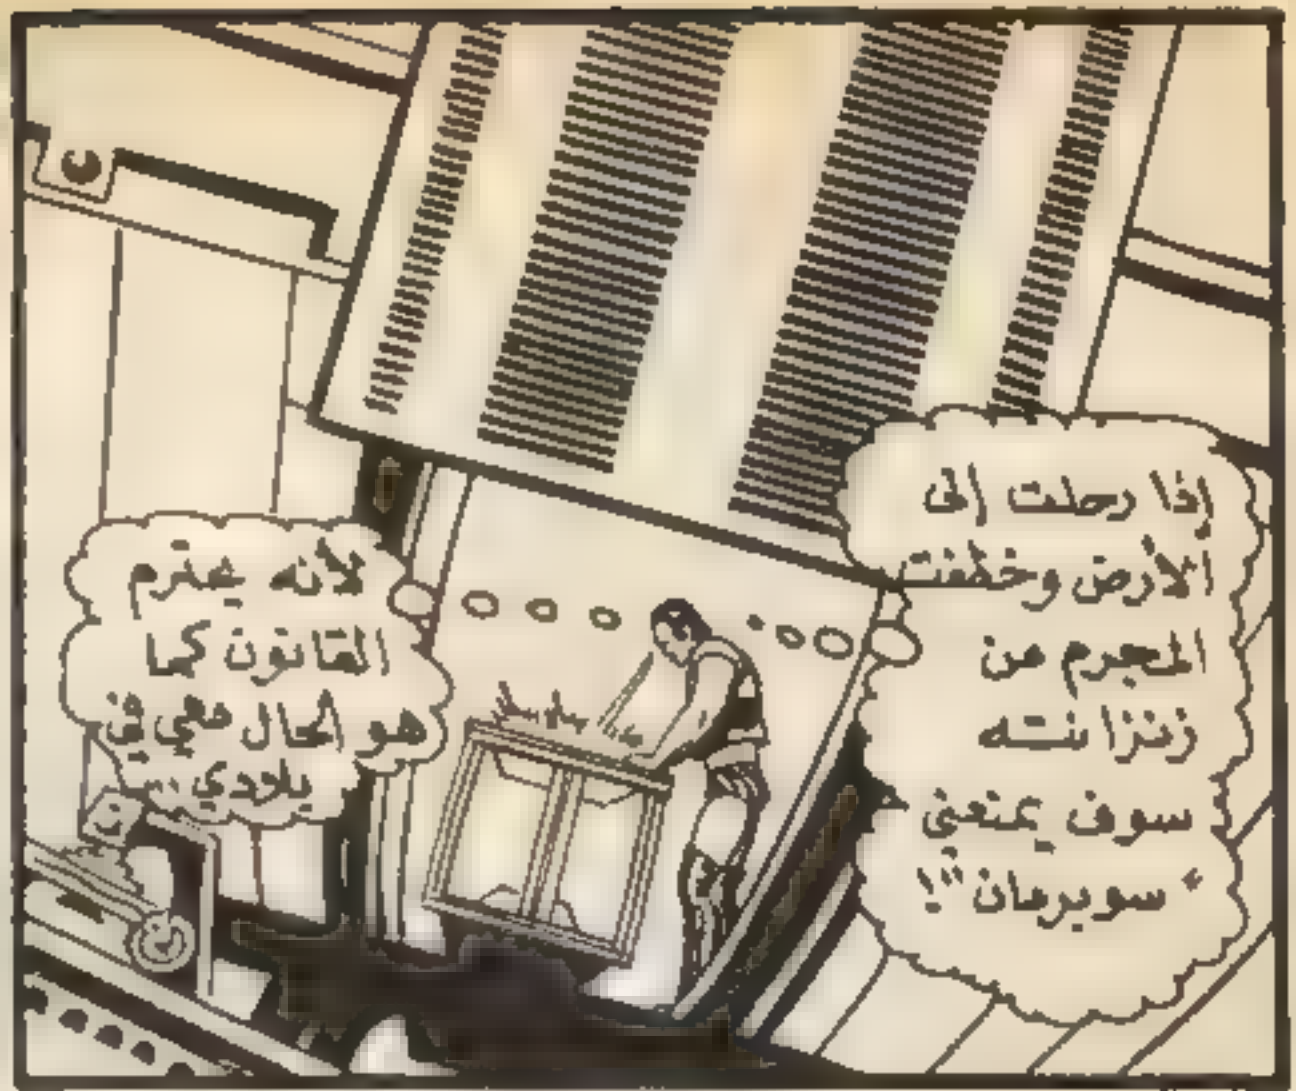 إذا رحلت إلى
الأرض وخطفت
المجرم من
زنزانته
سوف يمنعني
"سوبرمان"!
لأنه يحترم
القانون كما
هو الحال معي في
بلادي ...